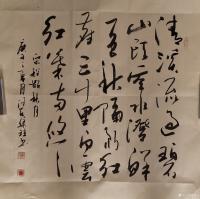 清溪流過碧
山頭空水澄鮮
一色秋隔斷紅
塵三十里白雲
紅葉兩悠悠
宋程顥秋月